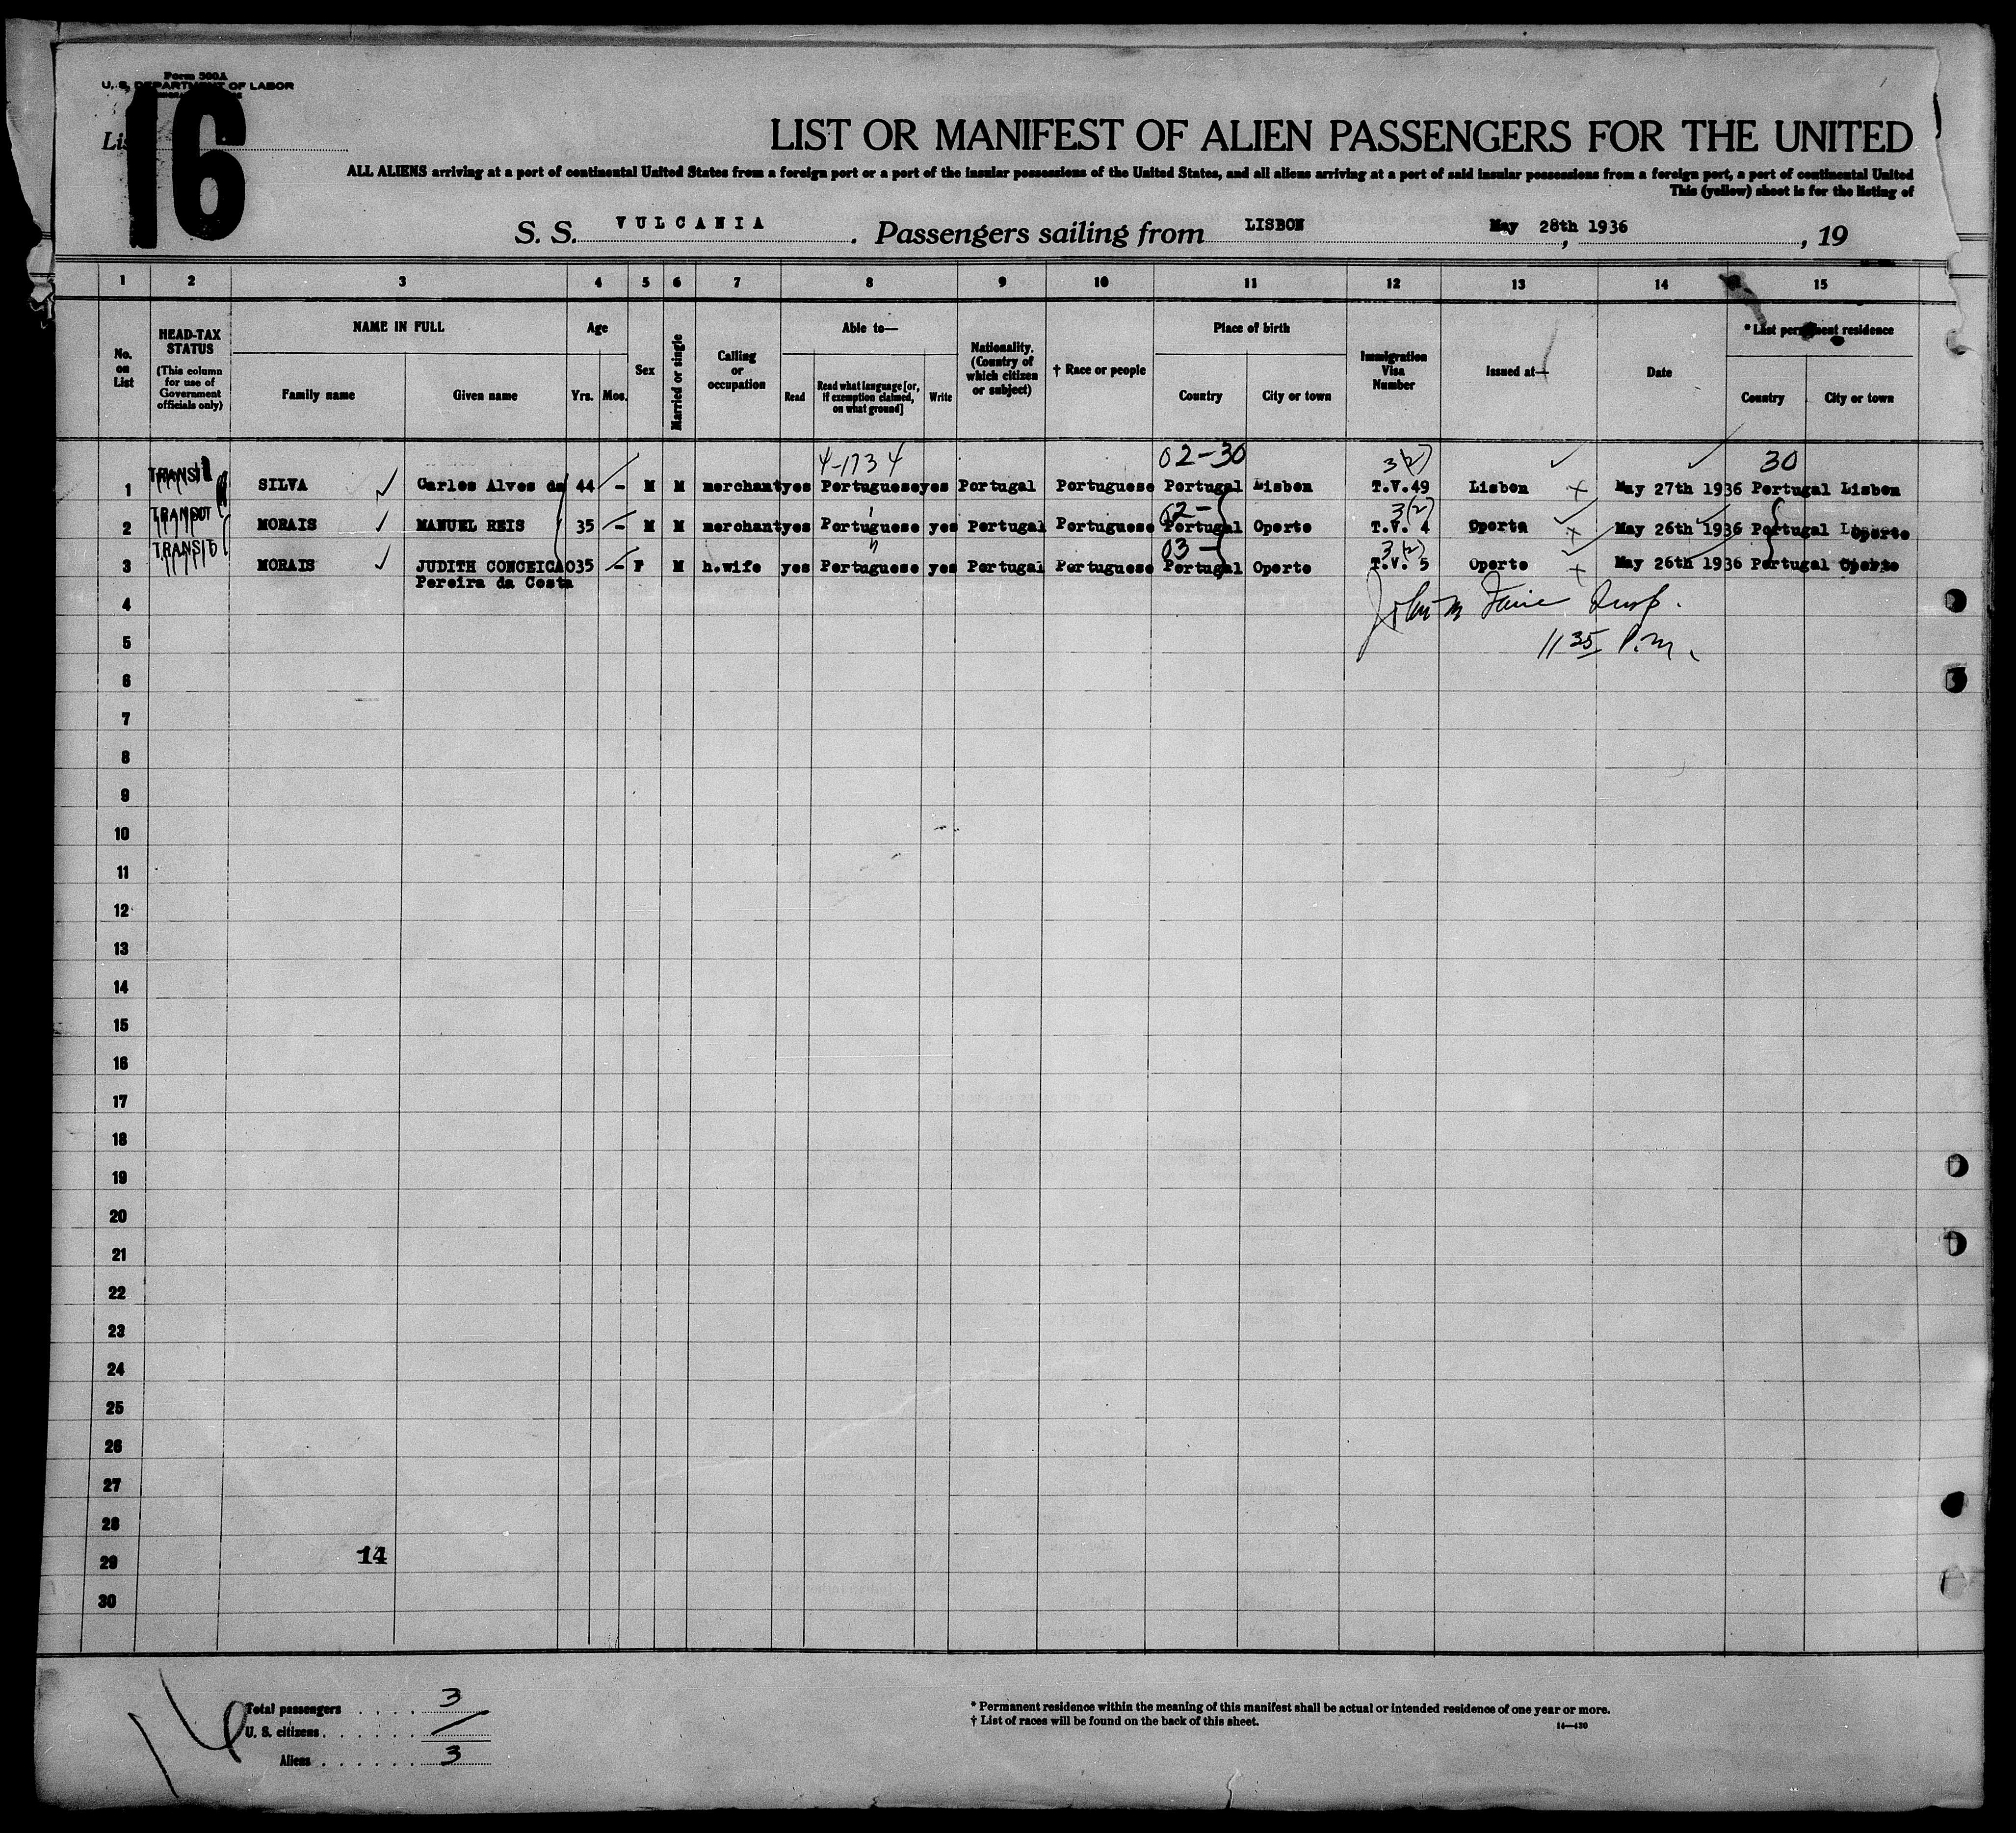 Form 500A
U. S. DEPARTMENT OF LABOR
16
LIST OR MANIFEST OF ALIEN PASSENGERS FOR THE UNITED
ALL ALIENS arriving at a port of continental United States from a foreign port or a port of the insular possessions of the United States, and all aliens arriving at a port of said insular possessions from a foreign port, a port of continental United
This (yellow) sheet is for the listing of
S. S. VULCANIA. Passengers sailing from LISBON, May 28th 1936, 19
1 2 3 4 5 6 7 8 9 10 11 12 13 14 15
No. on List
HEAD-TAX STATUS
(This column for use of Government officials only)
NAME IN FULL
Family name
Given name
Age
Yrs.
Mos.
Sex
Married or single
Calling or occupation
Able to—
Read
Read what language [or, if exemption claimed, on what ground]
Write
Nationality. (Country of which citizen or subject)
† Race or people
Place of birth
Country
City or town
Immigration Visa Number
Issued at—
Date
* Last permanent residence
Country
City or town
4-1734 02-30 3(2) 30
1 TRANSIT SILVA Carlos Alves da 44 - M M merchant yes Portuguese yes Portugal Portuguese Portugal Lisbon T.V.49 Lisbon May 27th 1936 Portugal Lisbon
02- 3(2)
2 TRANSIT MORAIS MANUEL REIS 35 - M M merchant yes Portuguese yes Portugal Portuguese Portugal Oporto T.V. 4 Oporto May 26th 1936 Portugal Oporto
03- 3(2)
3 TRANSIT MORAIS JUDITH CONCEICAO 35 - F M h.wife yes Portuguese yes Portugal Portuguese Portugal Oporto T.V. 5 Oporto May 26th 1936 Portugal Oporto
Pereira da Costa
4 John M
5 11 35 P.m.
6
7
8
9
10
11
12
13
14
15
16
17
18
19
20
21
22
23
24
25
26
27
28
29 14
30
16
Total passengers . . . . 3
U. S. citizens . . . . . . —
Aliens . . . . . . 3
* Permanent residence within the meaning of this manifest shall be actual or intended residence of one year or more.
† List of races will be found on the back of this sheet.
14—430